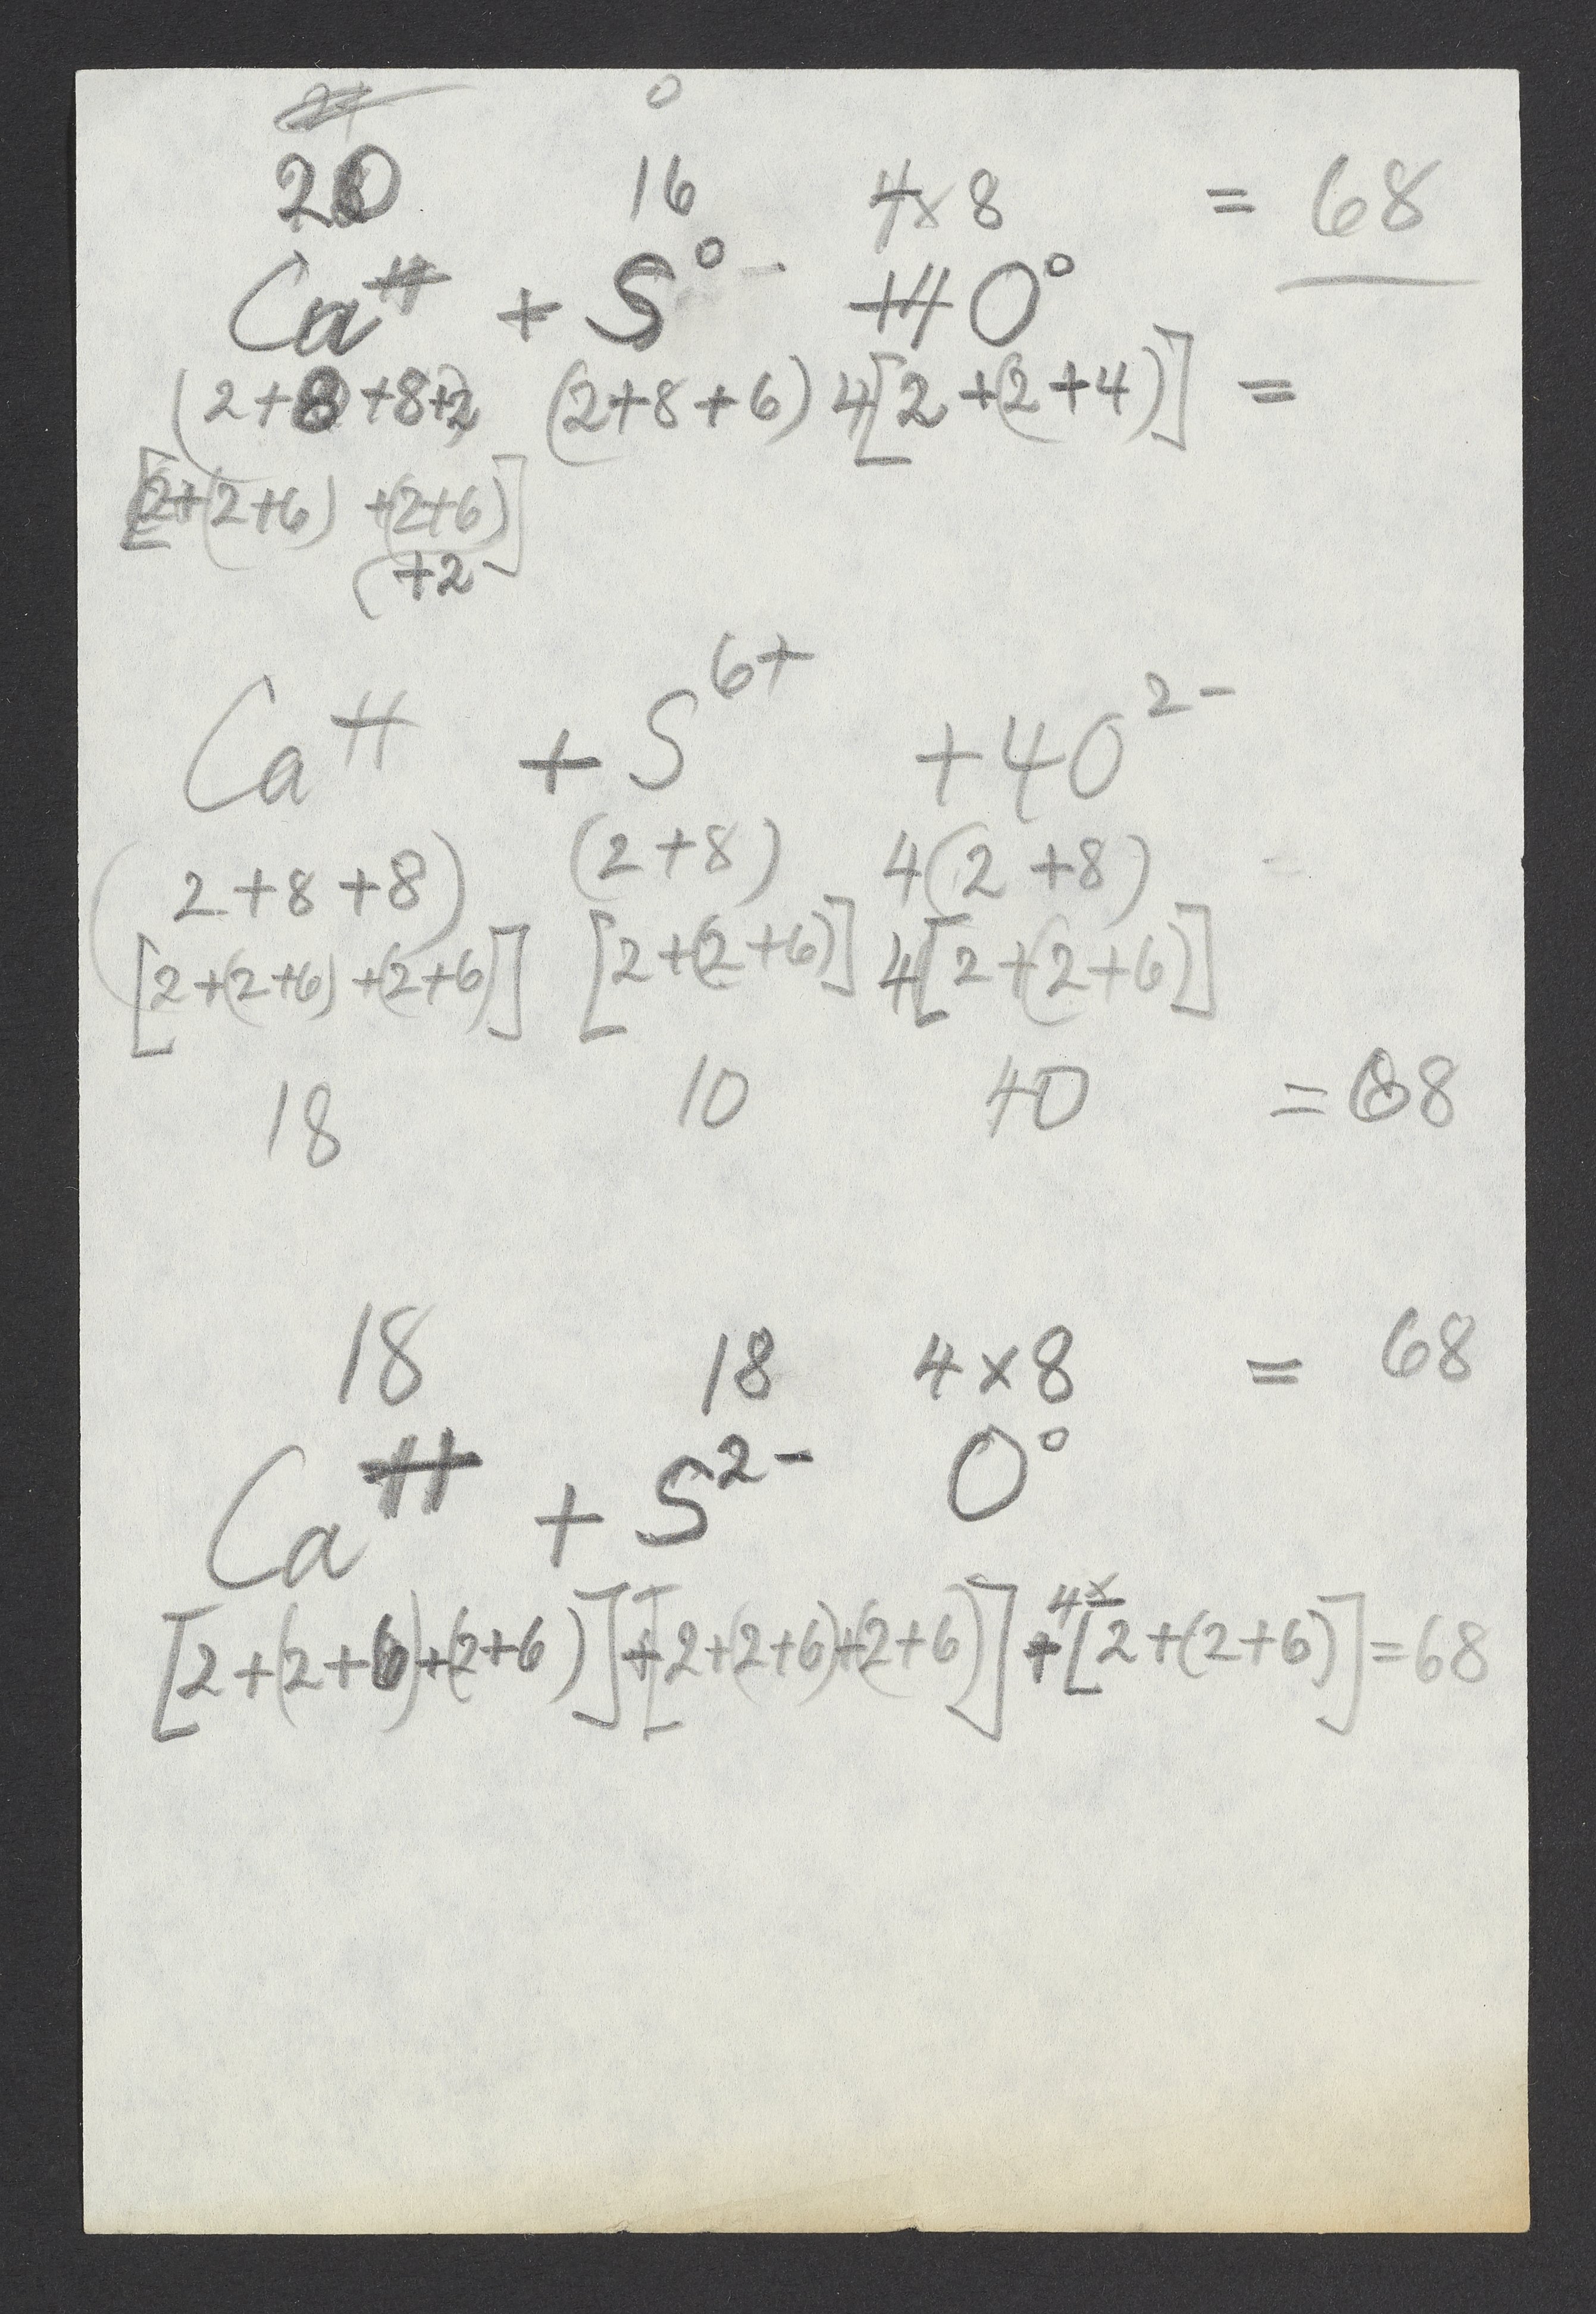 0
20 16 4×8 = 68
Ca++ + S0 - +4O0
(2+8+8+2) (2+8+6) 4[2+(2+4)] =
[2+(2+6) +(2+6)]
(+2
Ca++ + S6+ +4O2-
(2+8+8) (2+8) 4(2+8)
[2+(2+6)+(2+6)] [2+(2+6)] 4[2+(2+6)]
18 10 40 = 68
18 18 4×8 = 68
Ca++ + S2- O0
[2+(2+6)+(2+6)]+[2+(2+6)+(2+6)] + 4×[2+(2+6)] = 68